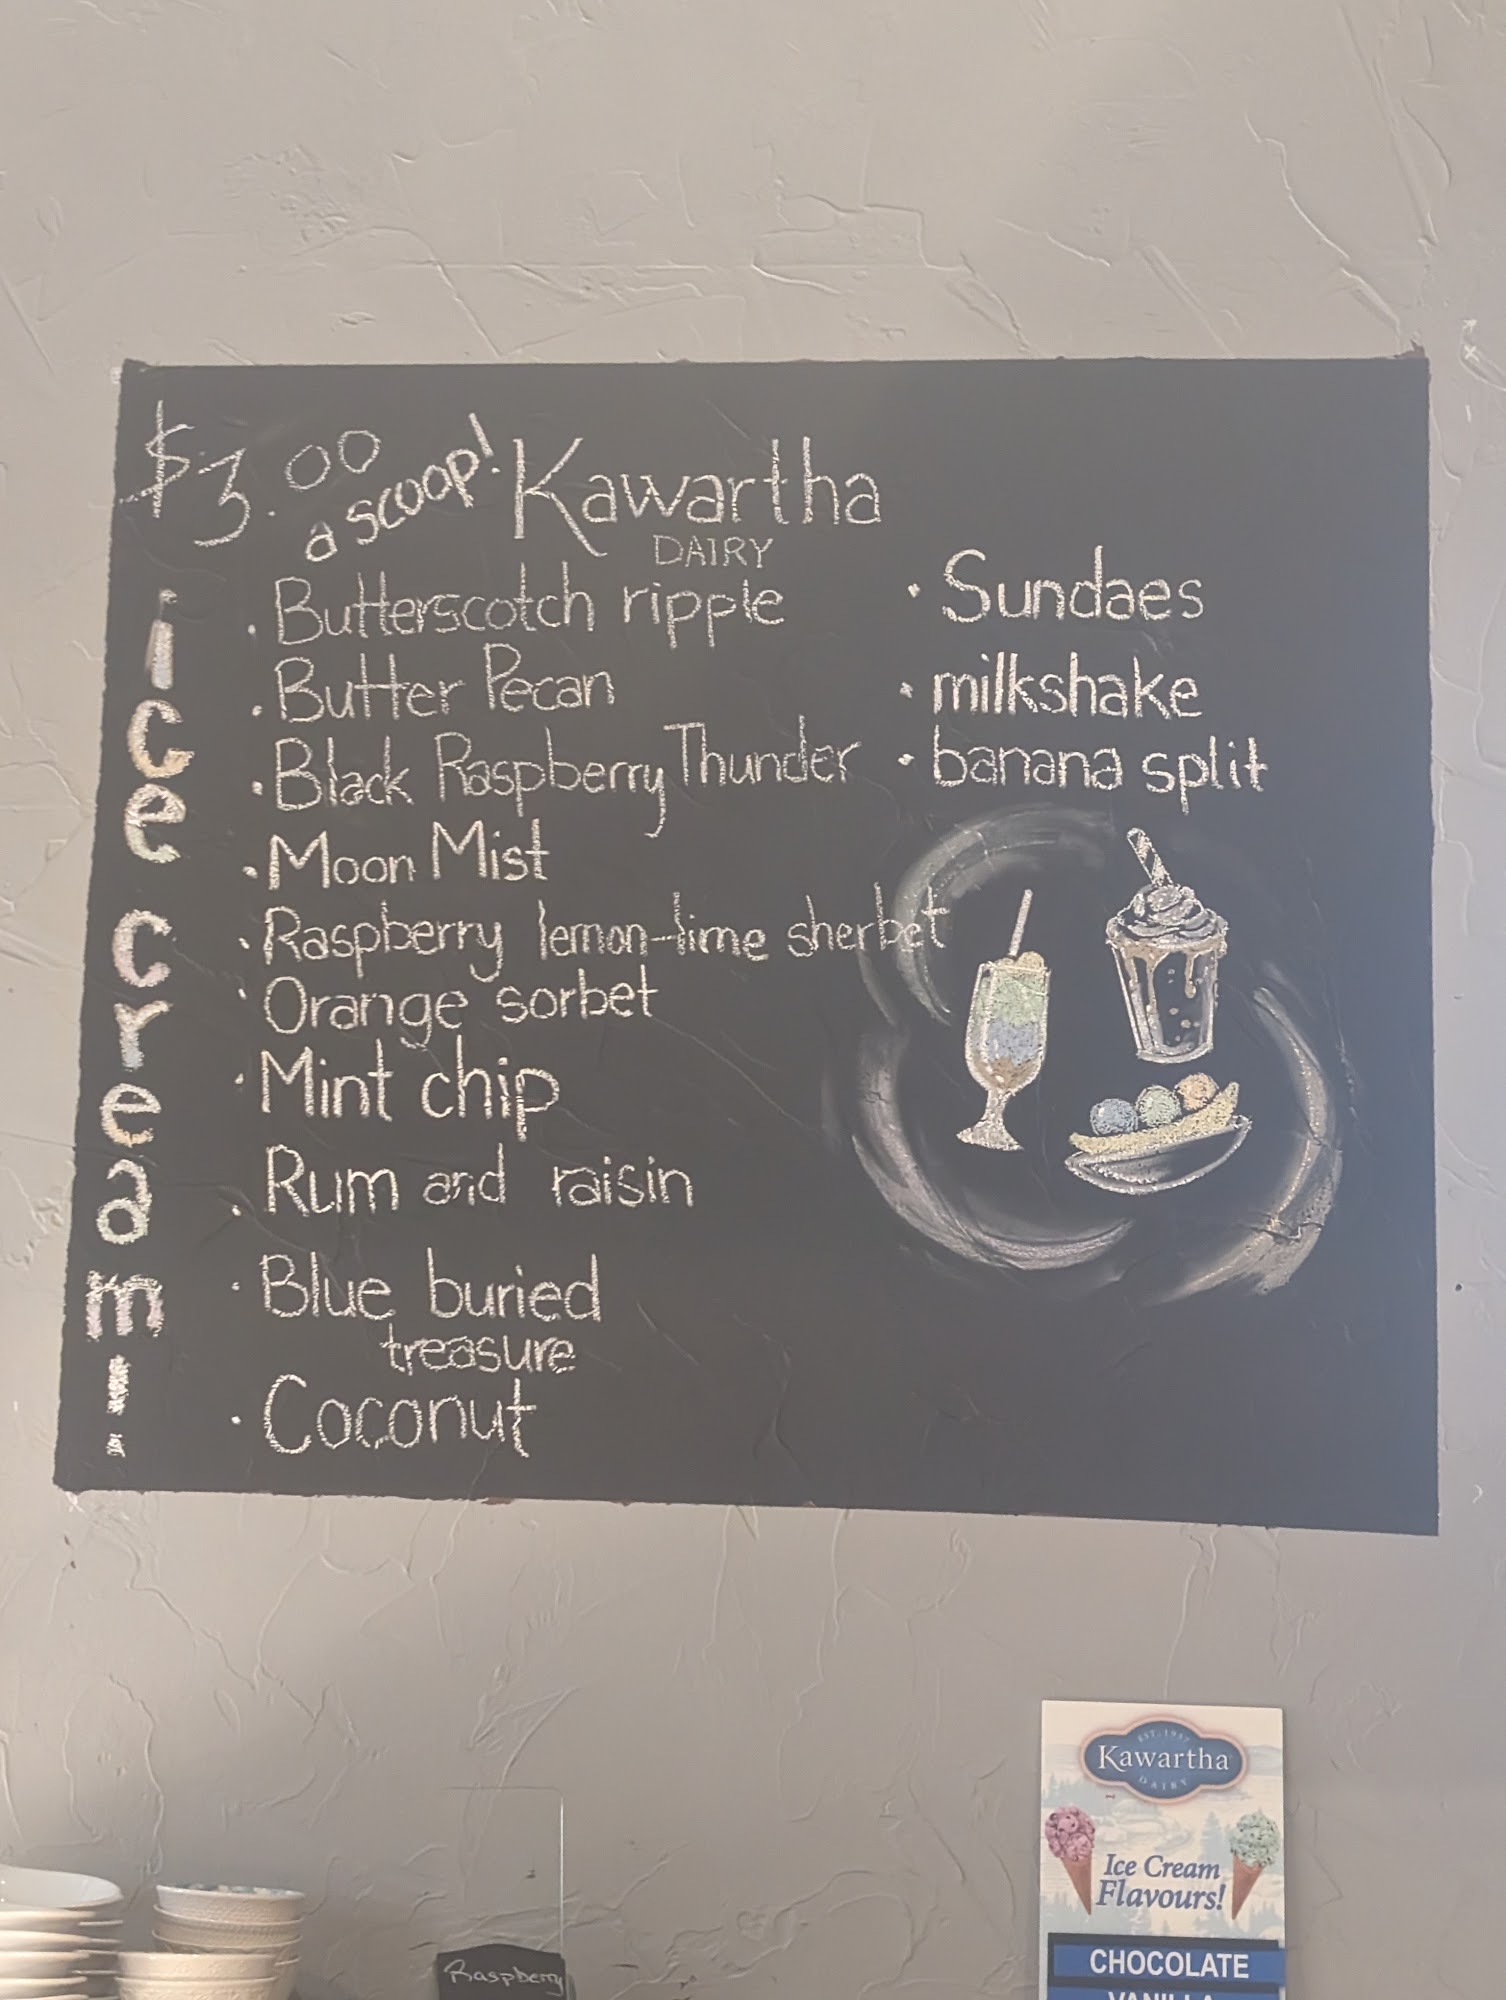 $3.00 a scoop!
Kawartha
DAIRY
ice cream!
• Butterscotch ripple
• Butter Pecan
• Black Raspberry Thunder
• Moon Mist
• Raspberry lemon-lime sherbet
• Orange sorbet
• Mint chip
• Rum and raisin
• Blue buried
treasure
• Coconut
• Sundaes
• milkshake
• banana split
EST. 1937
Kawartha
DAIRY
Ice Cream
Flavours!
CHOCOLATE
VANILLA
Raspberry